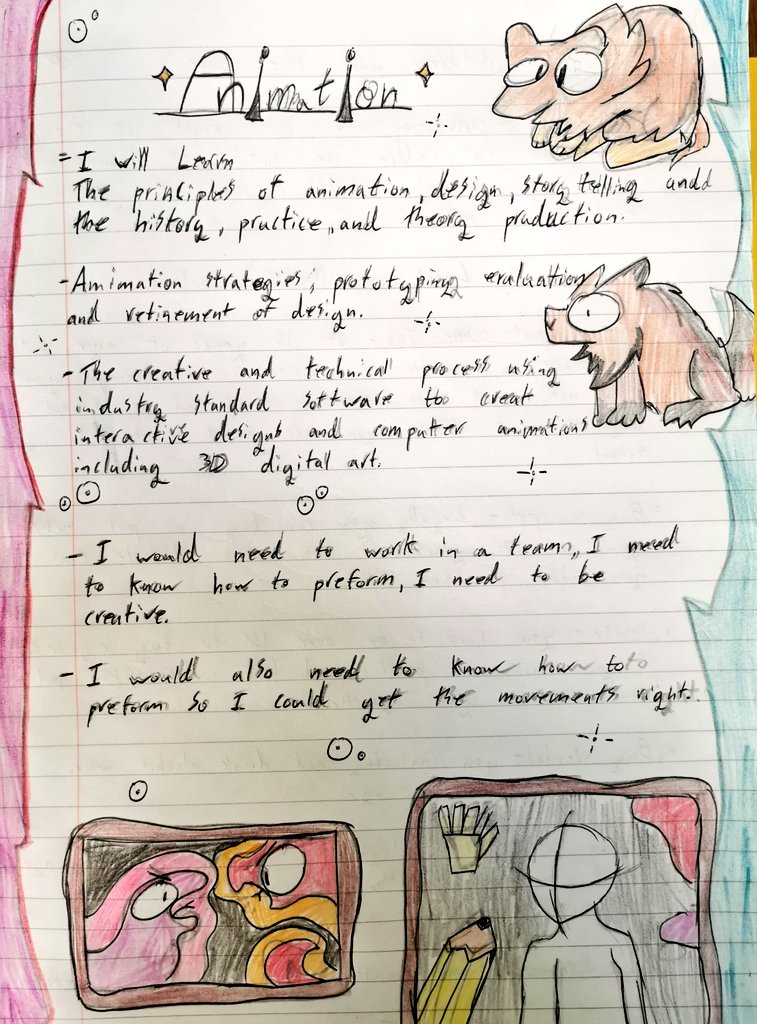 Animation
- I will Learn
The principles of animation, design, story telling and
the history, practice, and theory production.
- Amimation strategies, prototyping evaluation
and refinement of design.
- The creative and technical process using
industry standard software to creat
interactive designs and computter animations
including 3D digital art.
- I would need to work in a team, I need
to know how to preform, I need to be
creative.
- I would also need to know how to
preform so I could get the movements right.